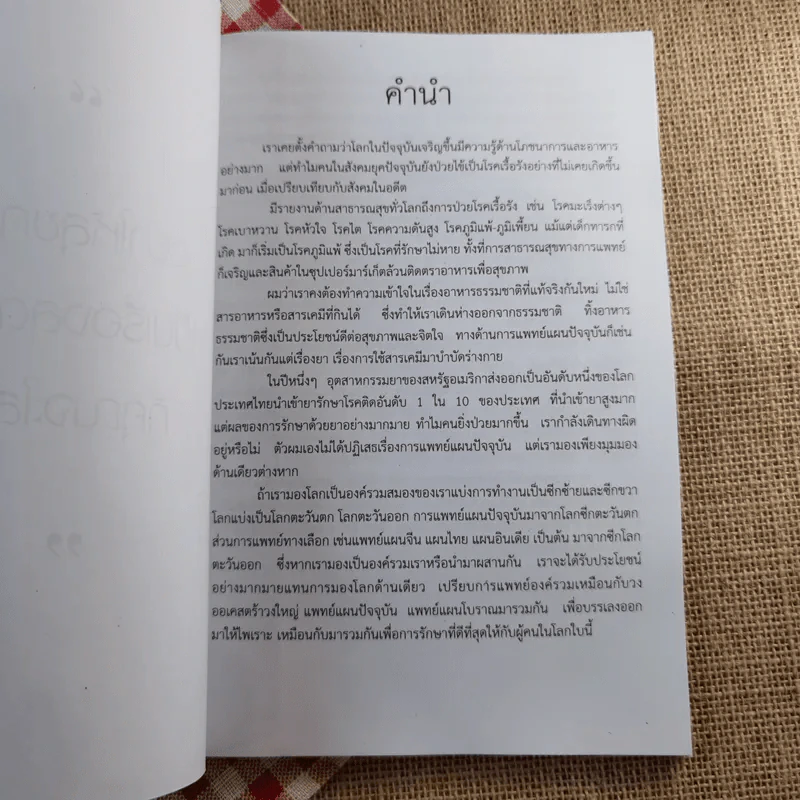 คำนำ
เราเคยตั้งคำถามว่าโลกในปัจจุบันเจริญขึ้นมีความรู้ด้านโภชนาการและอาหาร
อย่างมาก แต่ทำไมคนในสังคมยุคปัจจุบันยังป่วยไข้เป็นโรคเรื้อรังอย่างที่ไม่เคยเกิดขึ้น
มาก่อน เมื่อเปรียบเทียบกับสังคมในอดีต
มีรายงานด้านสาธารณสุขทั่วโลกถึงการป่วยโรคเรื้อรัง เช่น โรคมะเร็งต่างๆ
โรคเบาหวาน โรคหัวใจ โรคไต โรคความดันสูง โรคภูมิแพ้-ภูมิเพี้ยน แม้แต่เด็กทารกที่
เกิด มาก็เริ่มเป็นโรคภูมิแพ้ ซึ่งเป็นโรคที่รักษาไม่หาย ทั้งที่การสาธารณสุขทางการแพทย์
ก็เจริญและสินค้าในซุปเปอร์มาร์เก็ตล้วนติดตราอาหารเพื่อสุขภาพ
ผมว่าเราคงต้องทำความเข้าใจในเรื่องอาหารธรรมชาติที่แท้จริงกันใหม่ ไม่ใช่
สารอาหารหรือสารเคมีที่กินได้ ซึ่งทำให้เราเดินห่างออกจากธรรมชาติ ทิ้งอาหาร
ธรรมชาติซึ่งเป็นประโยชน์ดีต่อสุขภาพและจิตใจ ทางด้านการแพทย์แผนปัจจุบันก็เช่น
กันเราเน้นกันแต่เรื่องยา เรื่องการใช้สารเคมีมาบำบัดร่างกาย
ในปีหนึ่งๆ อุตสาหกรรมยาของสหรัฐอเมริกาส่งออกเป็นอันดับหนึ่งของโลก
ประเทศไทยนำเข้ายารักษาโรคติดอันดับ 1 ใน 10 ของประเทศ ที่นำเข้ายาสูงมาก
แต่ผลของการรักษาด้วยยาอย่างมากมาย ทำไมคนยิ่งป่วยมากขึ้น เรากำลังเดินทางผิด
อยู่หรือไม่ ตัวผมเองไม่ได้ปฏิเสธเรื่องการแพทย์แผนปัจจุบัน แต่เรามองเพียงมุมมอง
ด้านเดียวต่างหาก
ถ้าเรามองโลกเป็นองค์รวมสมองของเราแบ่งการทำงานเป็นซีกซ้ายและซีกขวา
โลกแบ่งเป็นโลกตะวันตก โลกตะวันออก การแพทย์แผนปัจจุบันมาจากโลกซีกตะวันตก
ส่วนการแพทย์ทางเลือก เช่นแพทย์แผนจีน แผนไทย แผนอินเดีย เป็นต้น มาจากซีกโลก
ตะวันออก ซึ่งหากเรามองเป็นองค์รวมเราหรือนำมาผสานกัน เราจะได้รับประโยชน์
อย่างมากมายแทนการมองโลกด้านเดียว เปรียบการแพทย์องค์รวมเหมือนกับวง
ออเคสตร้าวงใหญ่ แพทย์แผนปัจจุบัน แพทย์แผนโบราณมารวมกัน เพื่อบรรเลงออก
มาให้ไพเราะ เหมือนกับมารวมกันเพื่อการรักษาที่ดีที่สุดให้กับผู้คนในโลกใบนี้